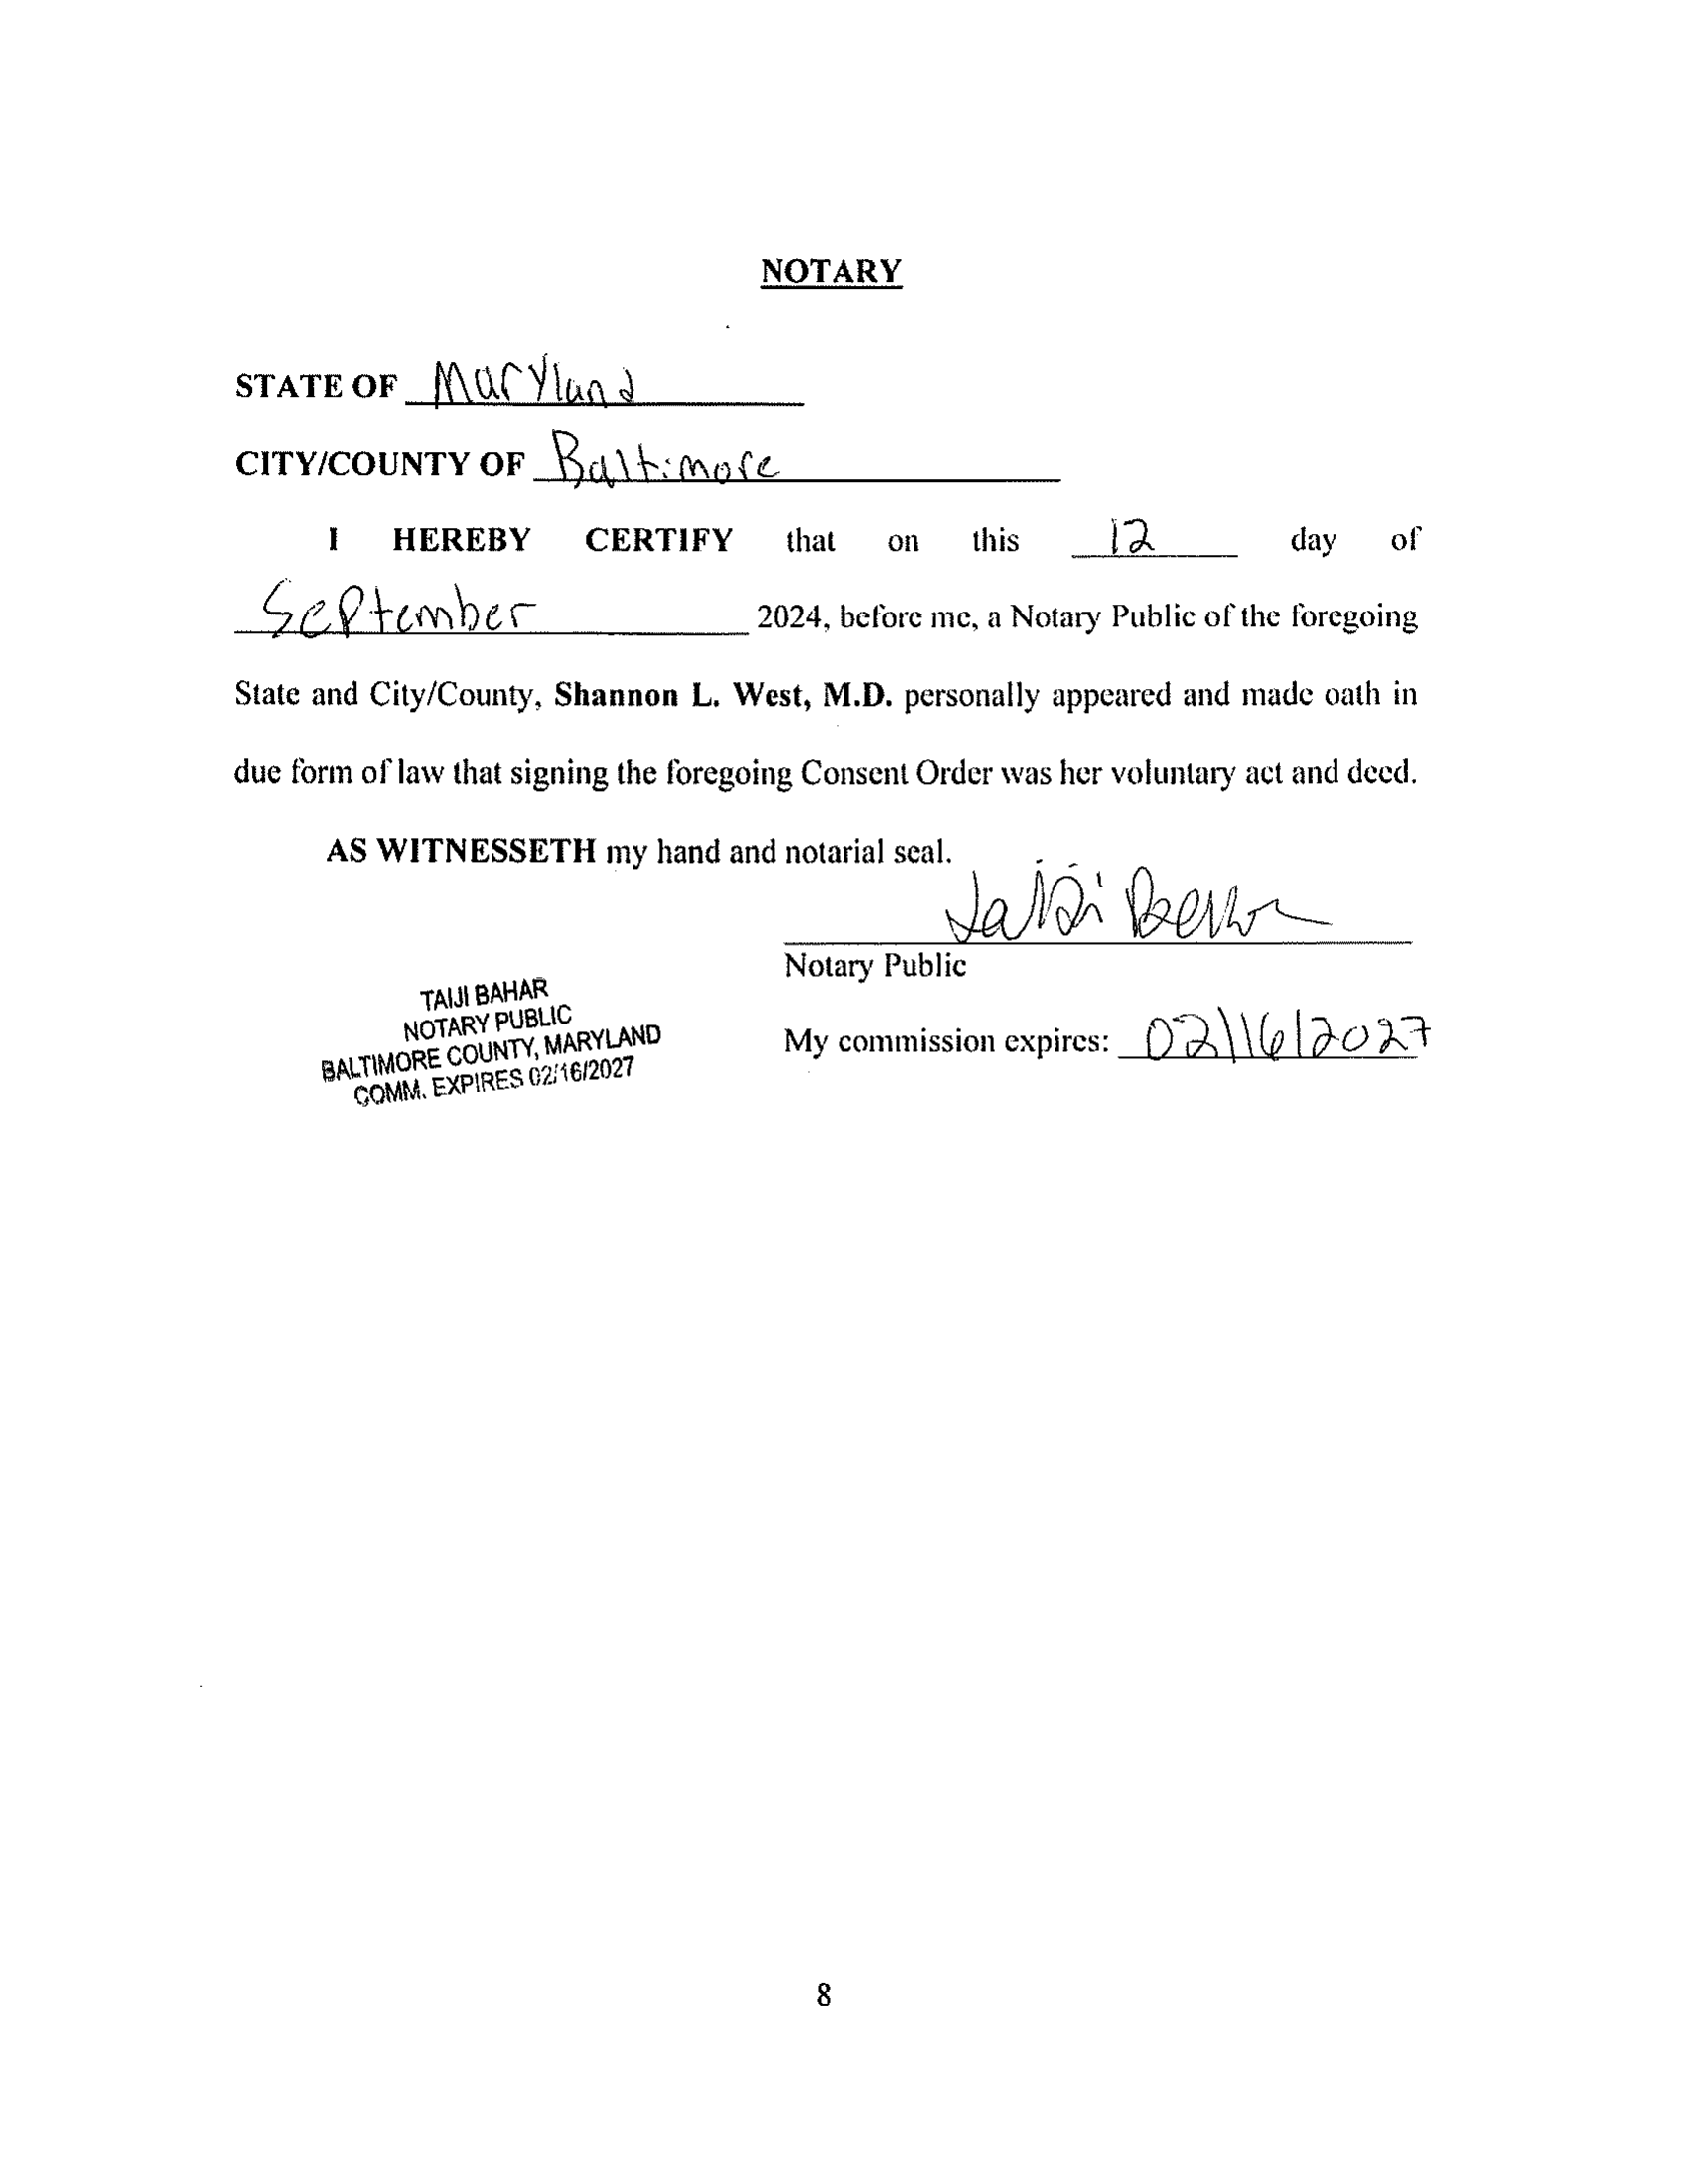 NOTARY
STATE OF Maryland
CITY/COUNTY OF Baltimore
I HEREBY CERTIFY that on this 12 day of
September 2024, before me, a Notary Public of the foregoing
State and City/County, Shannon L. West, M.D. personally appeared and made oath in
due form of law that signing the foregoing Consent Order was her voluntary act and deed.
AS WITNESSETH my hand and notarial seal.
Notary Public
My commission expires: 02/16/2027
TAIJI BAHAR
NOTARY PUBLIC
BALTIMORE COUNTY, MARYLAND
COMM. EXPIRES 02/16/2027
8